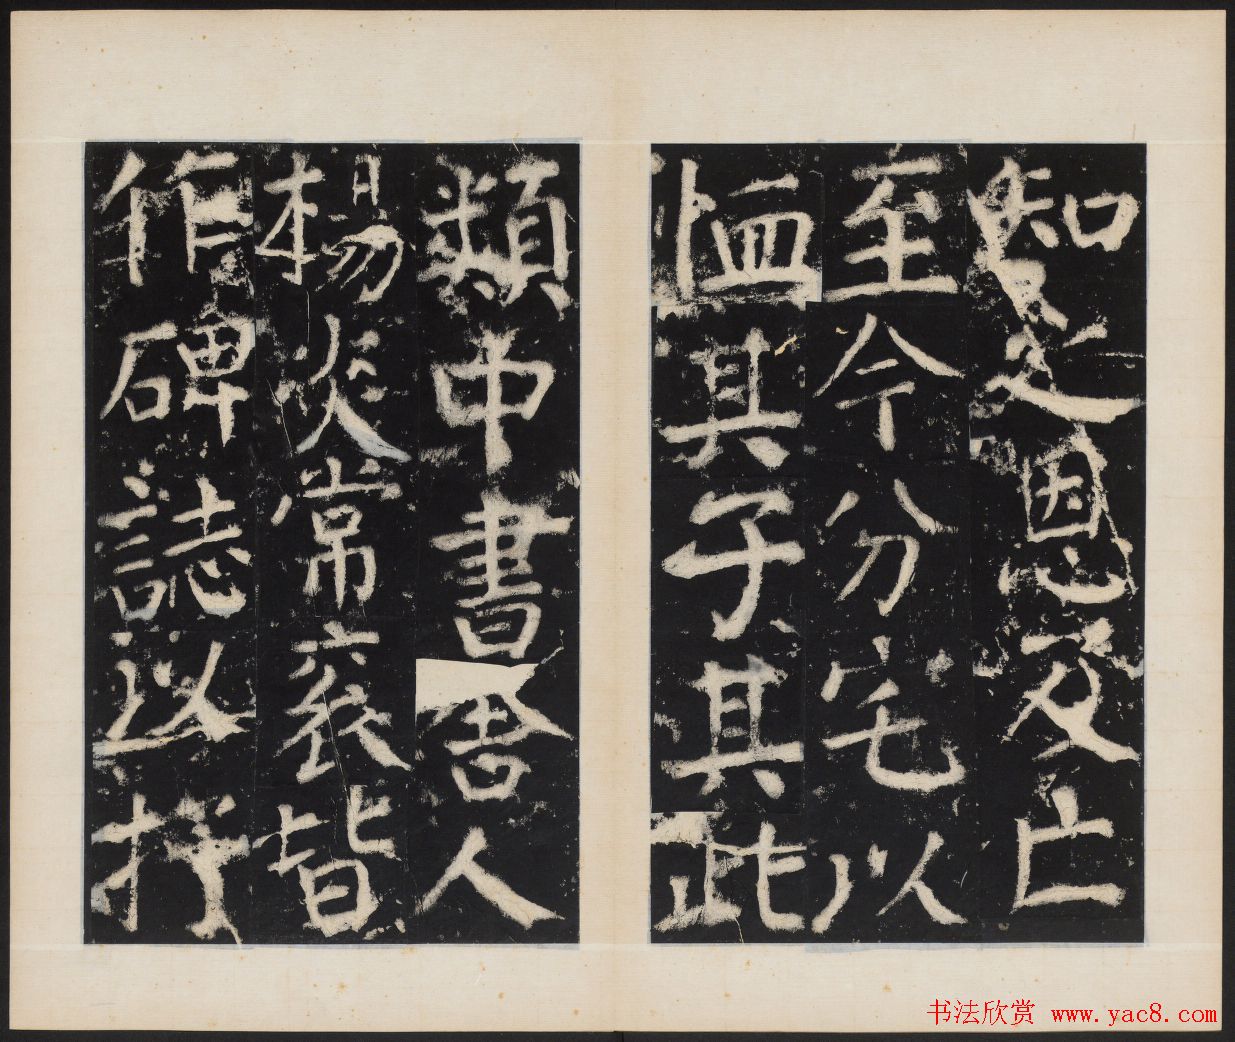 知之恩及亡
至今分宅以
恤其子其此
類中書舍人
楊炎常袞皆
作碑誌以抒
书法欣赏 www.yac8.com